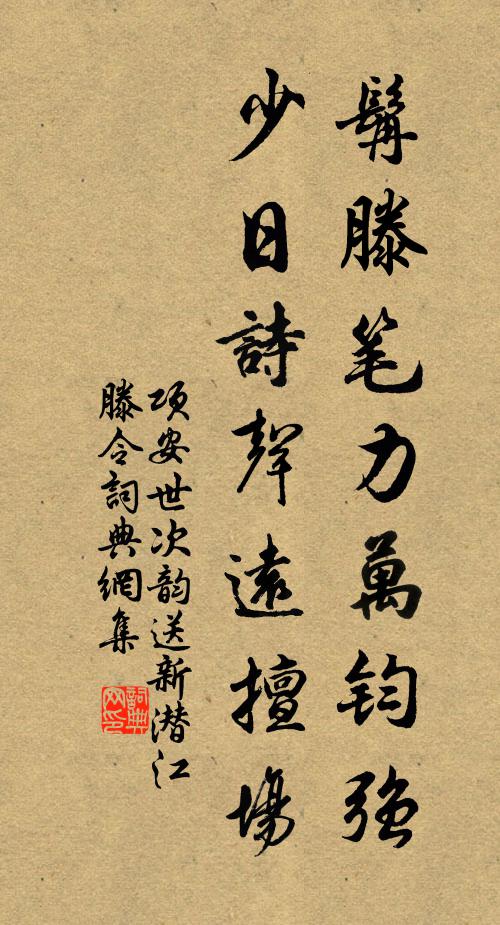 髯滕笔力萬钧强
少日詩聲遠擅場
项安世次韵送新潜江
滕令詞典網集
詞典网印